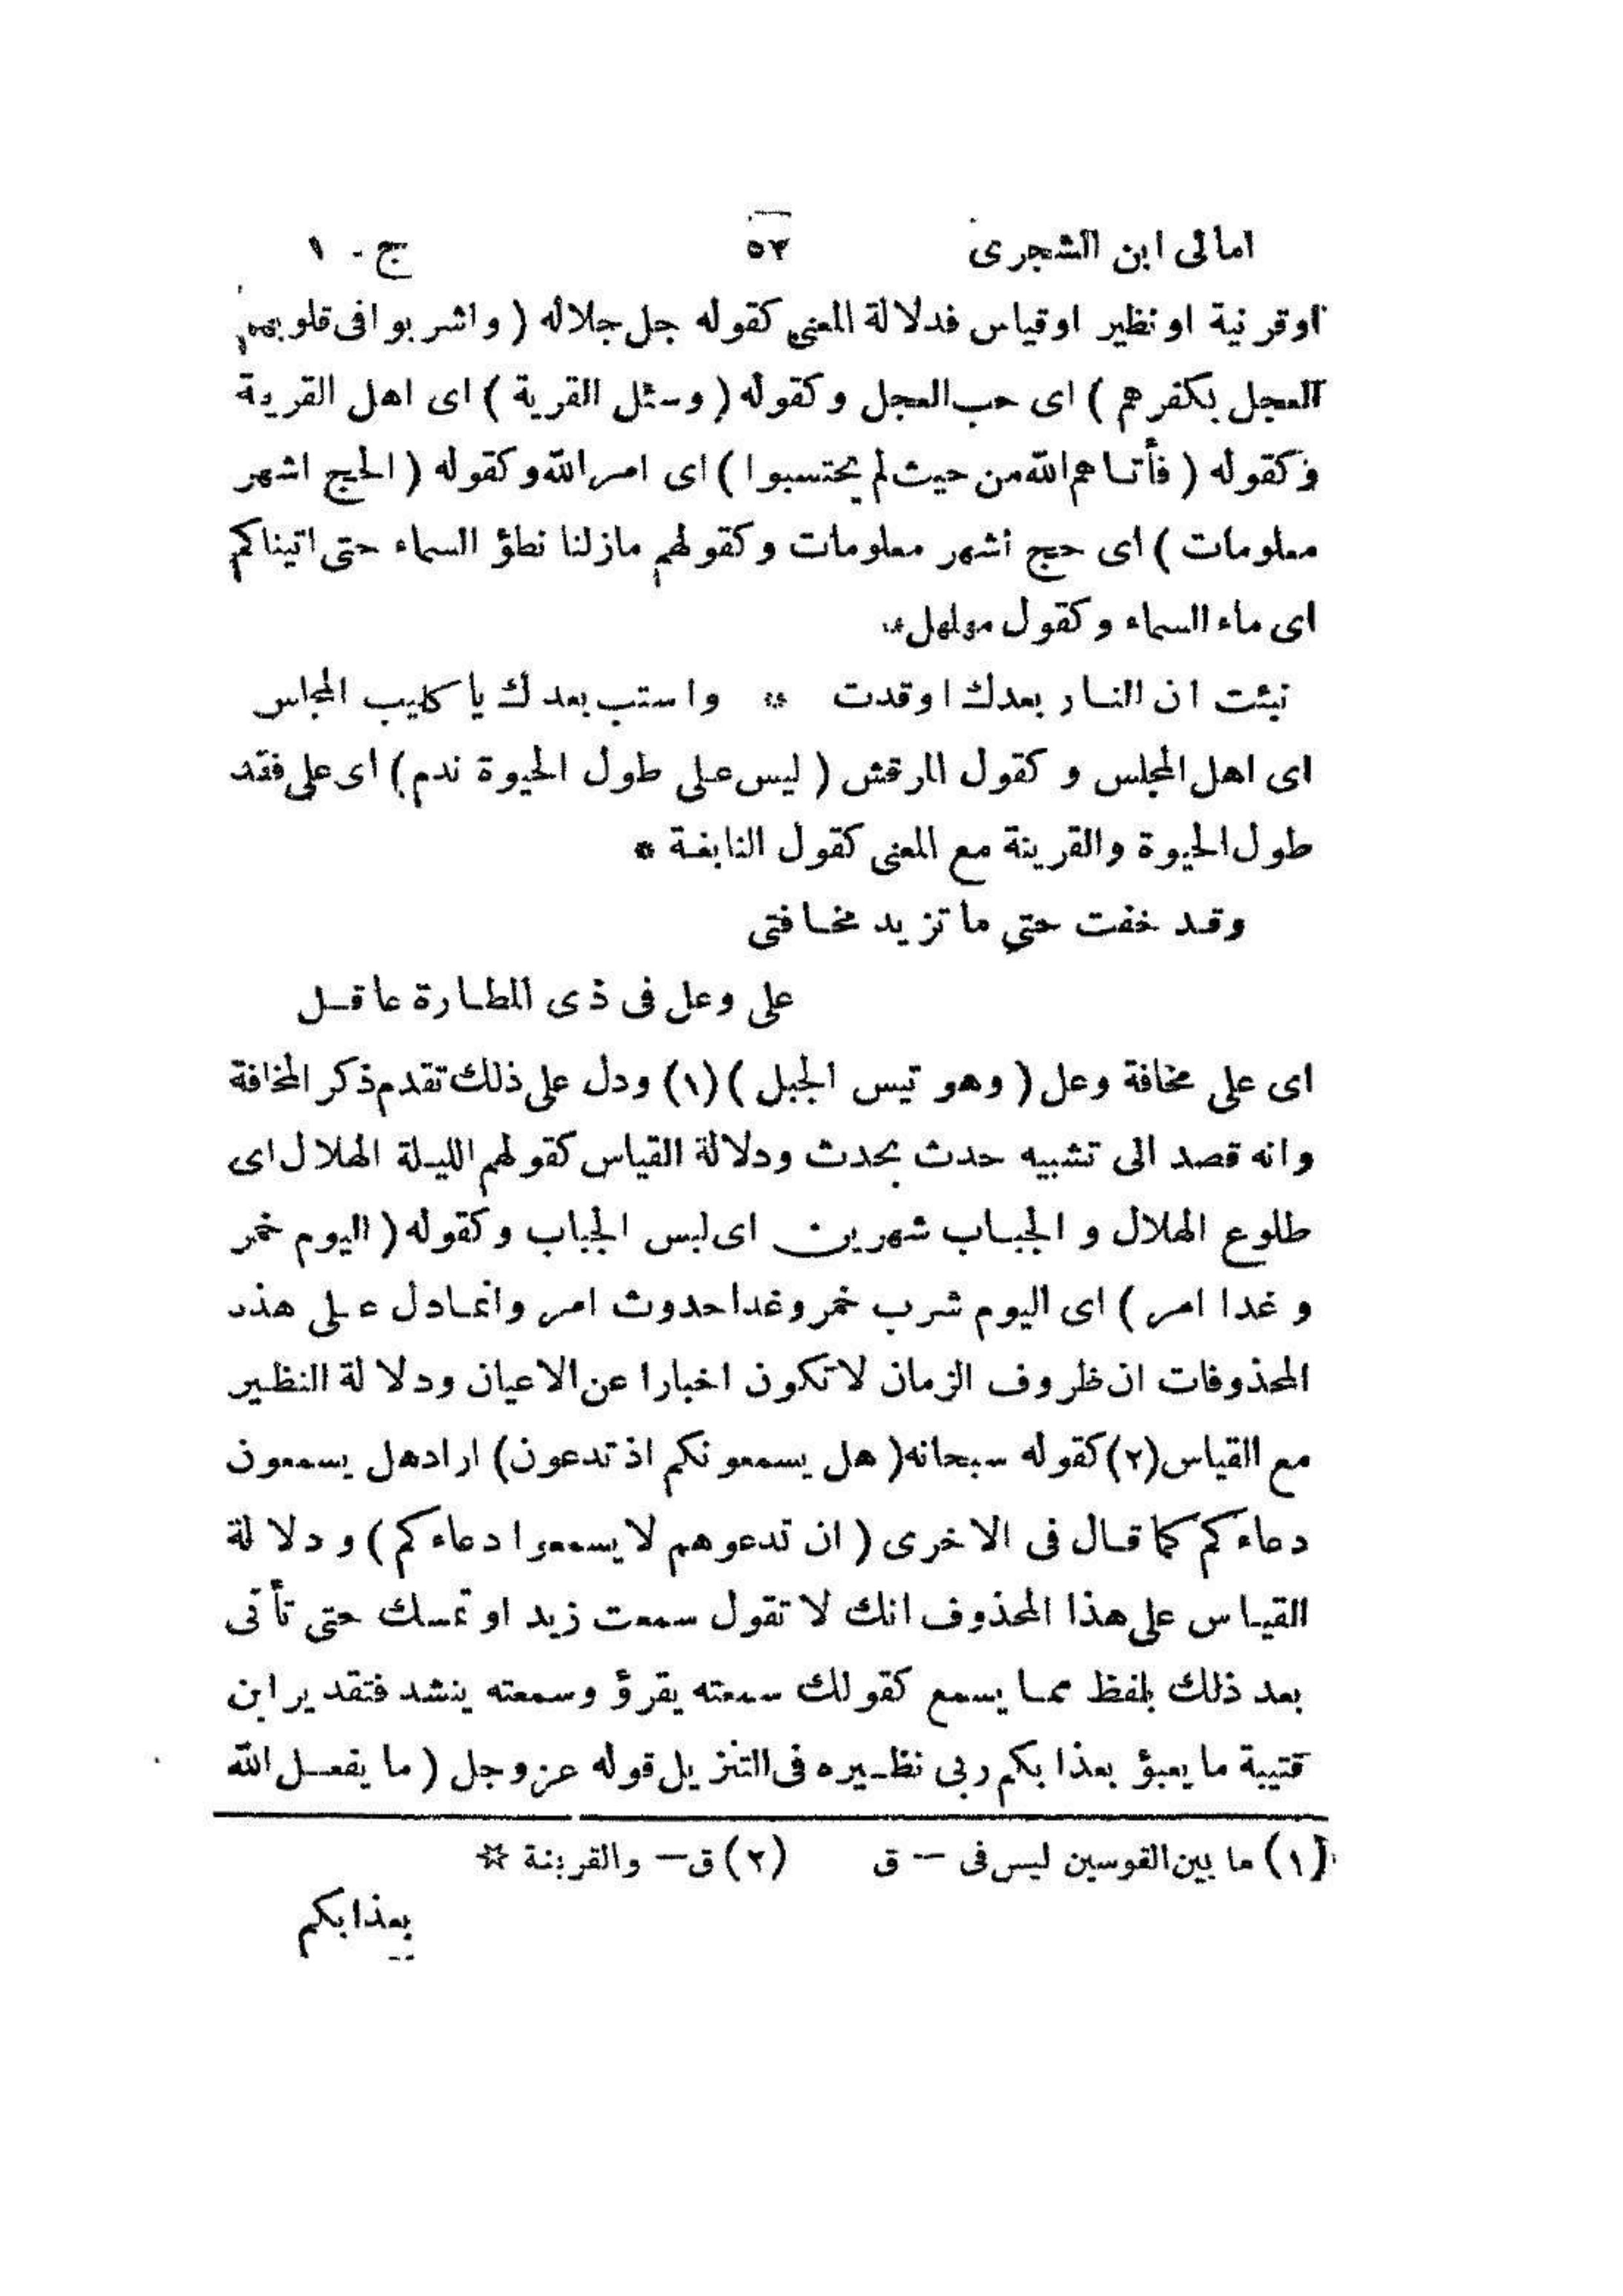 امالى ابن الشجرى ٥٣ ج - ١
اوقرنية اونظير اوقياس فدلالة المعنى كقوله جل جلاله ( واشربوا فى قلوبهم
العجل بكفرهم ) اى حب العجل وكقوله ( وسئل القرية ) اى اهل القرية
وكقوله ( فأتاهم الله من حيث لم يحتسبوا ) اى امر الله وكقوله ( الحج اشهر
معلومات ) اى حج اشهر معلومات وكقولهم مازلنا نطؤ السماء حتى اتيناكم
اى ماء السماء وكقول مهلهل *
نبئت ان النار بعدك اوقدت * واستب بعدك يا كليب المجلس
اى اهل المجلس وكقول المرقش ( ليس على طول الحيوة ندم ) اى على فقد
طول الحيوة والقرينة مع المعنى كقول النابغة *
وقد خفت حتى ما تزيد مخافتى
على وعل فى ذى المطارة عاقل
اى على مخافة وعل ( وهو تيس الجبل ) (١) ودل على ذلك تقدم ذكر المخافة
وانه قصد الى تشبيه حدث بحدث ودلالة القياس كقولهم الليلة الهلال اى
طلوع الهلال و الجباب شهرين اى لبس الجباب وكقوله ( اليوم خمر
وغدا امر ) اى اليوم شرب خمر وغدا حدوث امر وانمادل على هذه
المحذوفات ان ظروف الزمان لاتكون اخبارا عن الاعيان ودلالة النظير
مع القياس (٢) كقوله سبحانه ( هل يسمعونكم اذ تدعون ) اراد هل يسمعون
دعاءكم كما قال فى الاخرى ( ان تدعوهم لا يسمعوا دعاءكم ) ودلالة
القياس على هذا المحذوف انك لا تقول سمعت زيد اوتمسك حتى تأتى
بعد ذلك بلفظ مما يسمع كقولك سمعته يقرؤ وسمعته ينشد فتقدير ابن
قتيبة ما يعبؤ بعذابكم ربى نظيره فى التنزيل قوله عز وجل ( ما يفعل الله
(١) ما بين القوسين ليس فى — ق (٢) ق — والقرينة ☆
بعذابكم